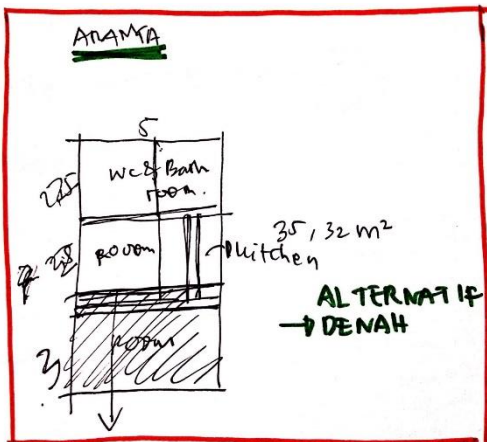 ARANTA
5
WC & Bath
room.
room
kitchen
35, 32 m²
ALTERNATIF
→ DENAH
3
room